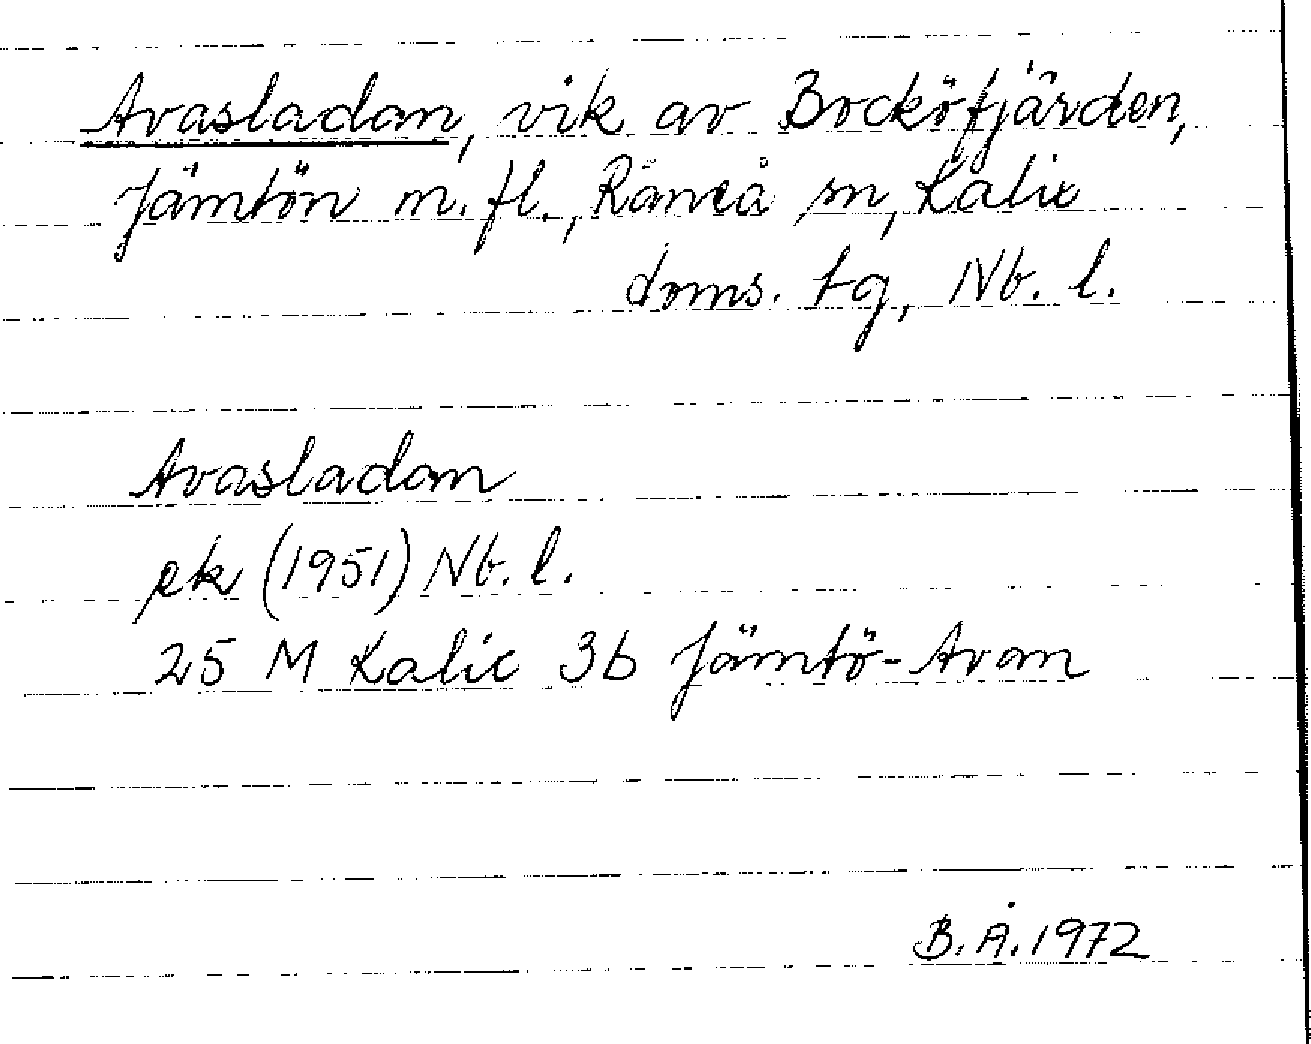 Avasladan, vik av Bocköfjärden,
Jämtön m.fl., Råneå sn, Kalix
doms. tg, Nb. l.
Avasladan
ek (1951) Nb. l.
25 M Kalix 3b Jämtö-Avan
B.Å.1972